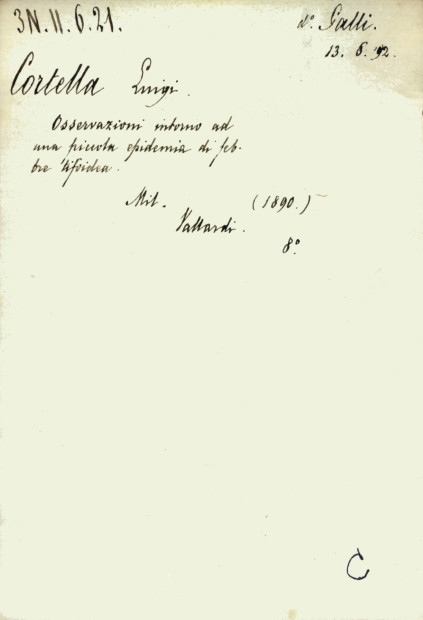 3N.II.6.21.
dº. Galli.
13. 6. 92.
Cortella Luigi.
Osservazioni intorno ad
una piccola epidemia di feb-
bre tifoidea.
Mil. (1890.)
Vallardi.
8º
C